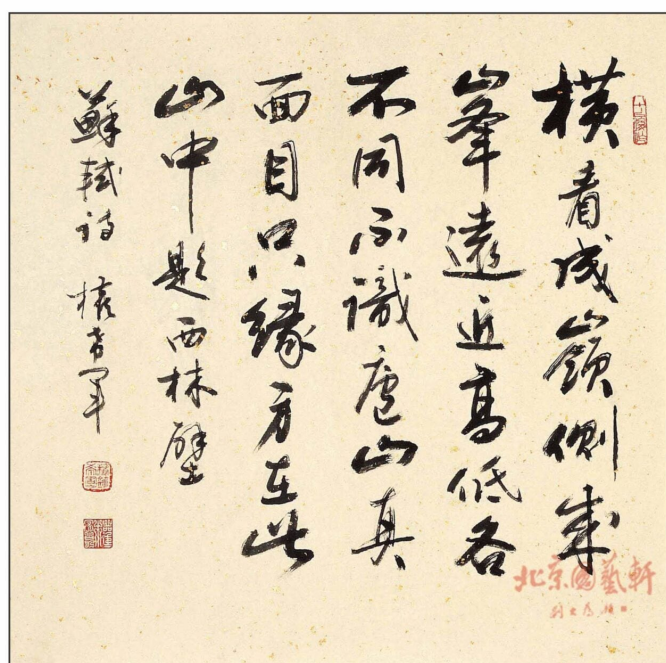 橫看成嶺側成
峯遠近高低各
不同不識廬山真
面目只緣身在此
山中題西林壁
蘇軾詩
北京國藝軒